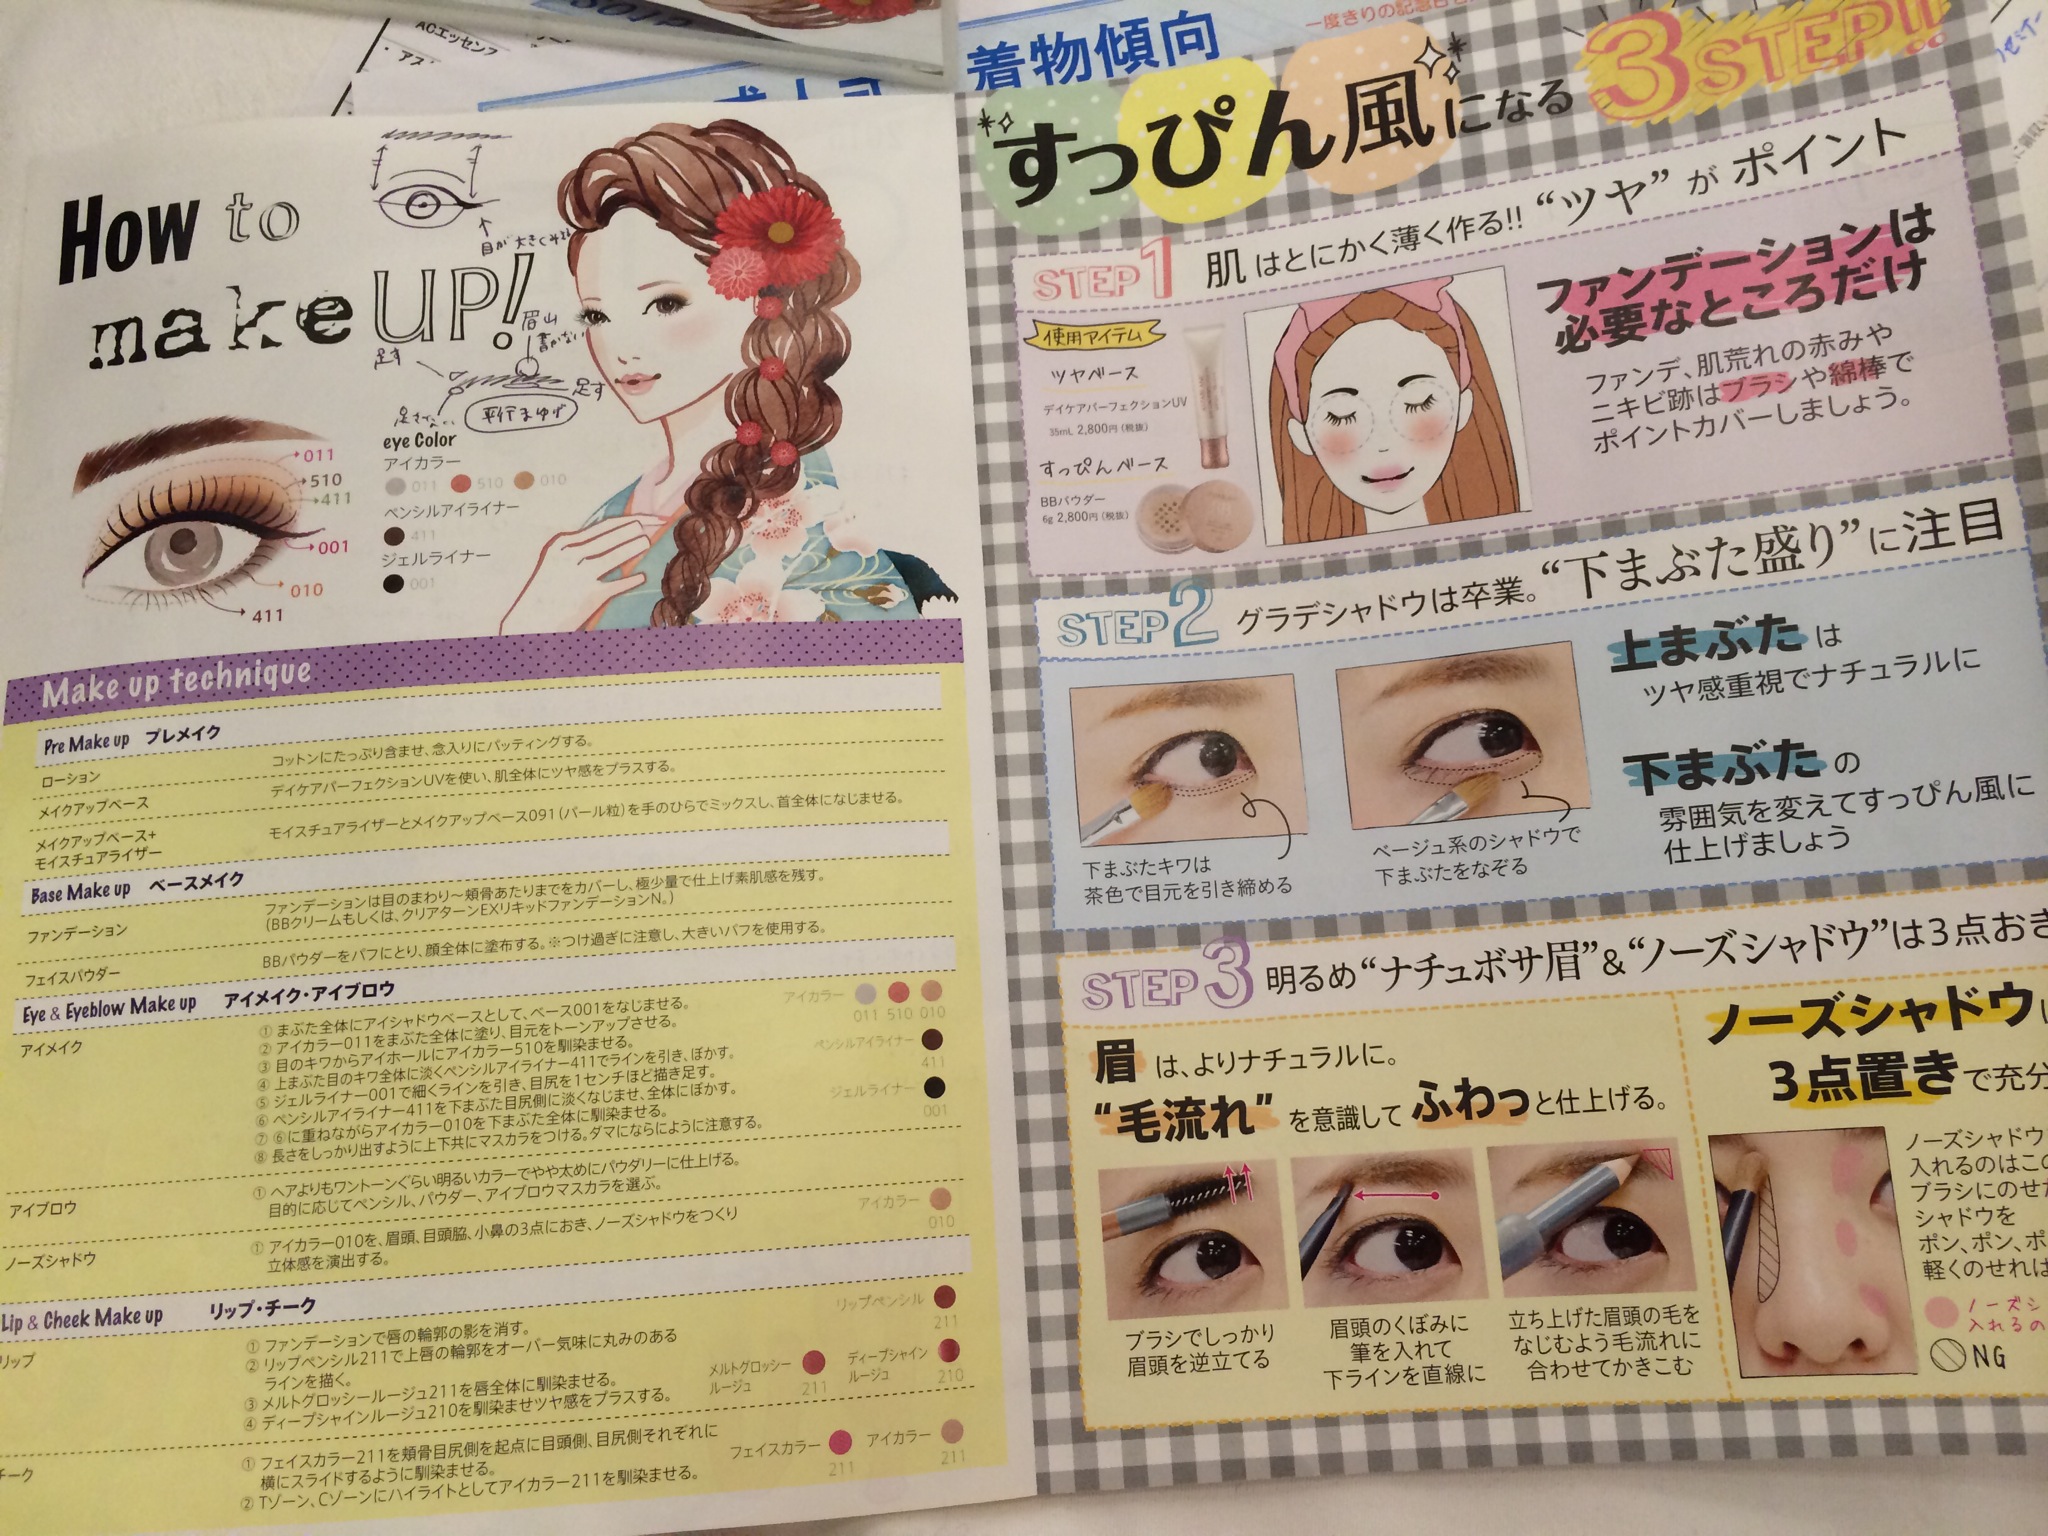 ACエッセンス
着物傾向
How to
make UP!
目が大きくみえる
眉山
書かない
足す
足す
足さない
平行まゆげ
011
510
411
001
010
411
eye Color
アイカラー
011 510 010
ペンシルアイライナー
411
ジェルライナー
001
Make up technique
Pre Make up プレメイク
ローション コットンにたっぷり含ませ、念入りにパッティングする。
メイクアップベース デイケアパーフェクションUVを使い、肌全体にツヤ感をプラスする。
メイクアップベース+
モイスチュアライザー モイスチュアライザーとメイクアップベース091(パール粒)を手のひらでミックスし、首全体になじませる。
Base Make up ベースメイク
ファンデーション ファンデーションは目のまわり〜頬骨あたりまでをカバーし、極少量で仕上げ素肌感を残す。
(BBクリームもしくは、クリアターンEXリキッドファンデーションN。)
フェイスパウダー BBパウダーをパフにとり、顔全体に塗布する。※つけ過ぎに注意し、大きいパフを使用する。
Eye & Eyeblow Make up アイメイク・アイブロウ
アイメイク
① まぶた全体にアイシャドウベースとして、ベース001をなじませる。
② アイカラー011をまぶた全体に塗り、目元をトーンアップさせる。
③ 目のキワからアイホールにアイカラー510を馴染ませる。
④ 上まぶた目のキワ全体に淡くペンシルアイライナー411でラインを引き、ぼかす。
⑤ ジェルライナー001で細くラインを引き、目尻を1センチほど描き足す。
⑥ ペンシルアイライナー411を下まぶた目尻側に淡くなじませ、全体にぼかす。
⑦ ⑥に重ねながらアイカラー010を下まぶた全体に馴染ませる。
⑧ 長さをしっかり出すように上下共にマスカラをつける。ダマにならにように注意する。
アイカラー
011 510 010
ペンシルアイライナー
411
ジェルライナー
001
アイブロウ
① ヘアよりもワントーンぐらい明るいカラーでやや太めにパウダリーに仕上げる。
目的に応じてペンシル、パウダー、アイブロウマスカラを選ぶ。
ノーズシャドウ
① アイカラー010を、眉頭、目頭脇、小鼻の3点におき、ノーズシャドウをつくり
立体感を演出する。
アイカラー
010
Lip & Cheek Make up リップ・チーク
リップ
① ファンデーションで唇の輪郭の影を消す。
② リップペンシル211で上唇の輪郭をオーバー気味に丸みのある
ラインを描く。
③ メルトグロッシールージュ211を唇全体に馴染ませる。
④ ディープシャインルージュ210を馴染ませツヤ感をプラスする。
リップペンシル
211
メルトグロッシー
ルージュ
211
ディープシャイン
ルージュ
210
チーク
① フェイスカラー211を頬骨目尻側を起点に目頭側、目尻側それぞれに
横にスライドするように馴染ませる。
② Tゾーン、Cゾーンにハイライトとしてアイカラー211を馴染ませる。
フェイスカラー
211
アイカラー
211
すっぴん風になる 3STEP!!
STEP1 肌はとにかく薄く作る!! “ツヤ”がポイント
使用アイテム
ツヤベース
デイケアパーフェクションUV
35mL 2,800円(税抜)
すっぴんベース
BBパウダー
6g 2,800円(税抜)
ファンデーションは
必要なところだけ
ファンデ、肌荒れの赤みや
ニキビ跡はブラシや綿棒で
ポイントカバーしましょう。
STEP2 グラデシャドウは卒業。“下まぶた盛り”に注目
下まぶたキワは
茶色で目元を引き締める
ベージュ系のシャドウで
下まぶたをなぞる
上まぶたは
ツヤ感重視でナチュラルに
下まぶたの
雰囲気を変えてすっぴん風に
仕上げましょう
STEP3 明るめ“ナチュボサ眉”&“ノーズシャドウ”は3点おき
眉は、よりナチュラルに。
“毛流れ”を意識してふわっと仕上げる。
ブラシでしっかり
眉頭を逆立てる
眉頭のくぼみに
筆を入れて
下ラインを直線に
立ち上げた眉頭の毛を
なじむよう毛流れに
合わせてかきこむ
ノーズシャドウ
3点置きで充分
ノーズシャドウ
入れるのはこの
ブラシにのせた
シャドウを
ポン、ポン、ポ
軽くのせれば
ノーズシ
入れるの
NG